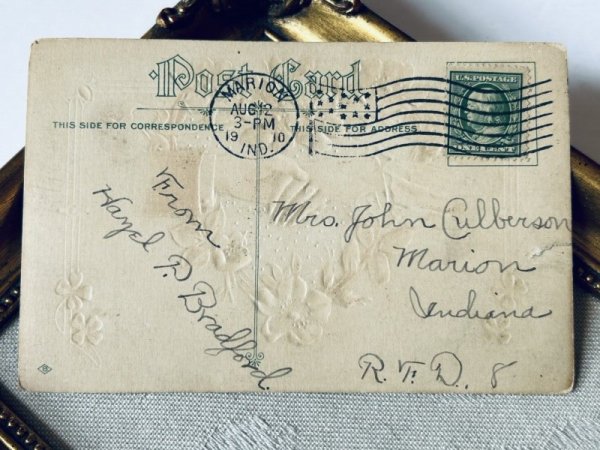 Post Card
MARION
AUG 12
3-PM
19 10
IND.
U.S. POSTAGE
ONE CENT
THIS SIDE FOR CORRESPONDENCE
THIS SIDE FOR ADDRESS
From
Hazel D. Bradford.
Mrs. John Culberson
Marion
Indiana
R. F. D. 8